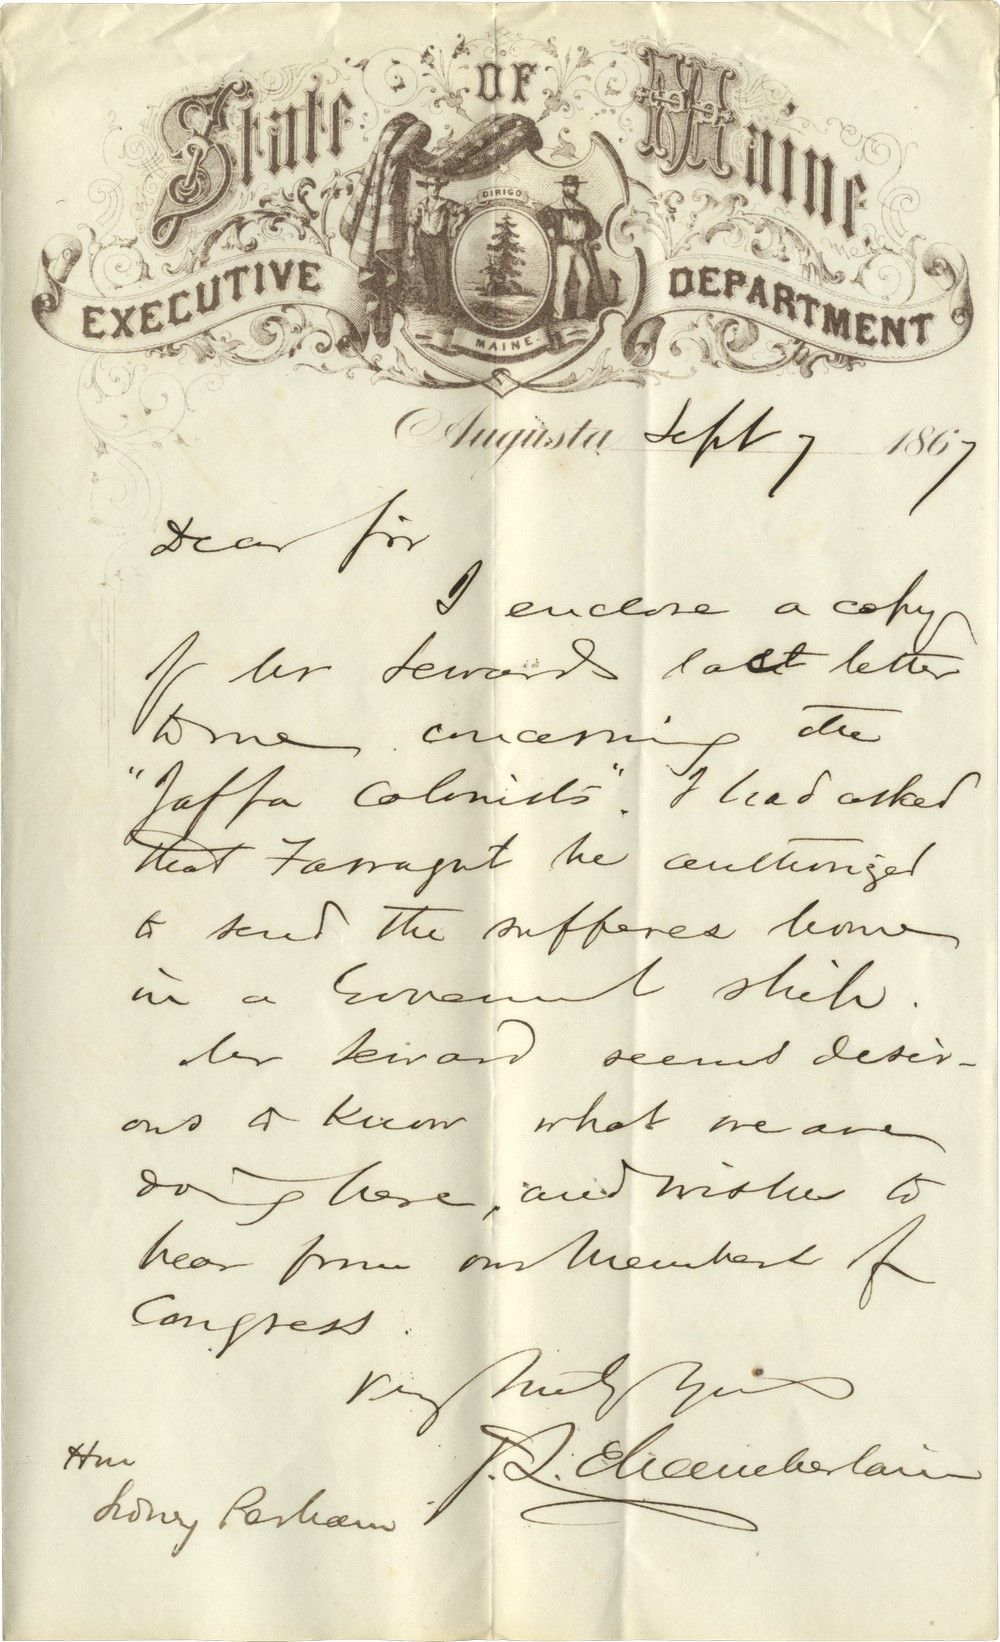 State OF Maine
DIRIGO
EXECUTIVE DEPARTMENT
MAINE.
Augusta, Sept 7 1867
Dear Sir
I enclose a copy
of Mr Sewards last letter
to me concerning the
"Jaffa Colonists". I had asked
that Farragut be authorized
to send the sufferes home
in a Government ship.
Mr Seward seems desir-
ous to know what we are
doing here, and wishes to
hear from our Members of
Congress.
Very truly yours
J. L. Chamberlain
Hon
Sidney Perham